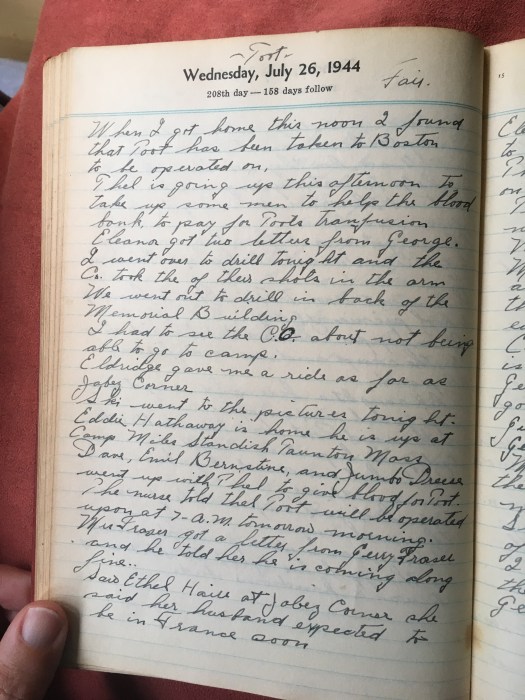 -Toot-
Wednesday, July 26, 1944
208th day — 158 days follow
Fair.
When I got home this noon I found
that Toot has been taken to Boston
to be operated on.
Thel is going up this afternoon to
take up some men to helps the blood
bank to pay for Toots tranfusion
Eleanor got two letters from George.
I went over to drill tonight and the
Co. took the of their shots in the arm
We went out to drill in back of the
Memorial Building
I had to see the C.O. about not being
able to go to camp.
Eldridge gave me a ride as far as
Jabez Corner
Ski went to the pictures tonight.
Eddie Hathaway is home he is up at
Camp Miles Standish Taunton Mass
Dave, Emil Bernstine, and Jumbo
went up with Thel to give blood for Toot.
The nurse told thel Toot will be operated
upon at 7-A.M. tomorrow morning.
Mrs Fraser got a letter from Gerry Fraser
and he told her he is coming along
fine..
Saw Ethel at Jabez Corner she
said her husband expected to
be in France soon